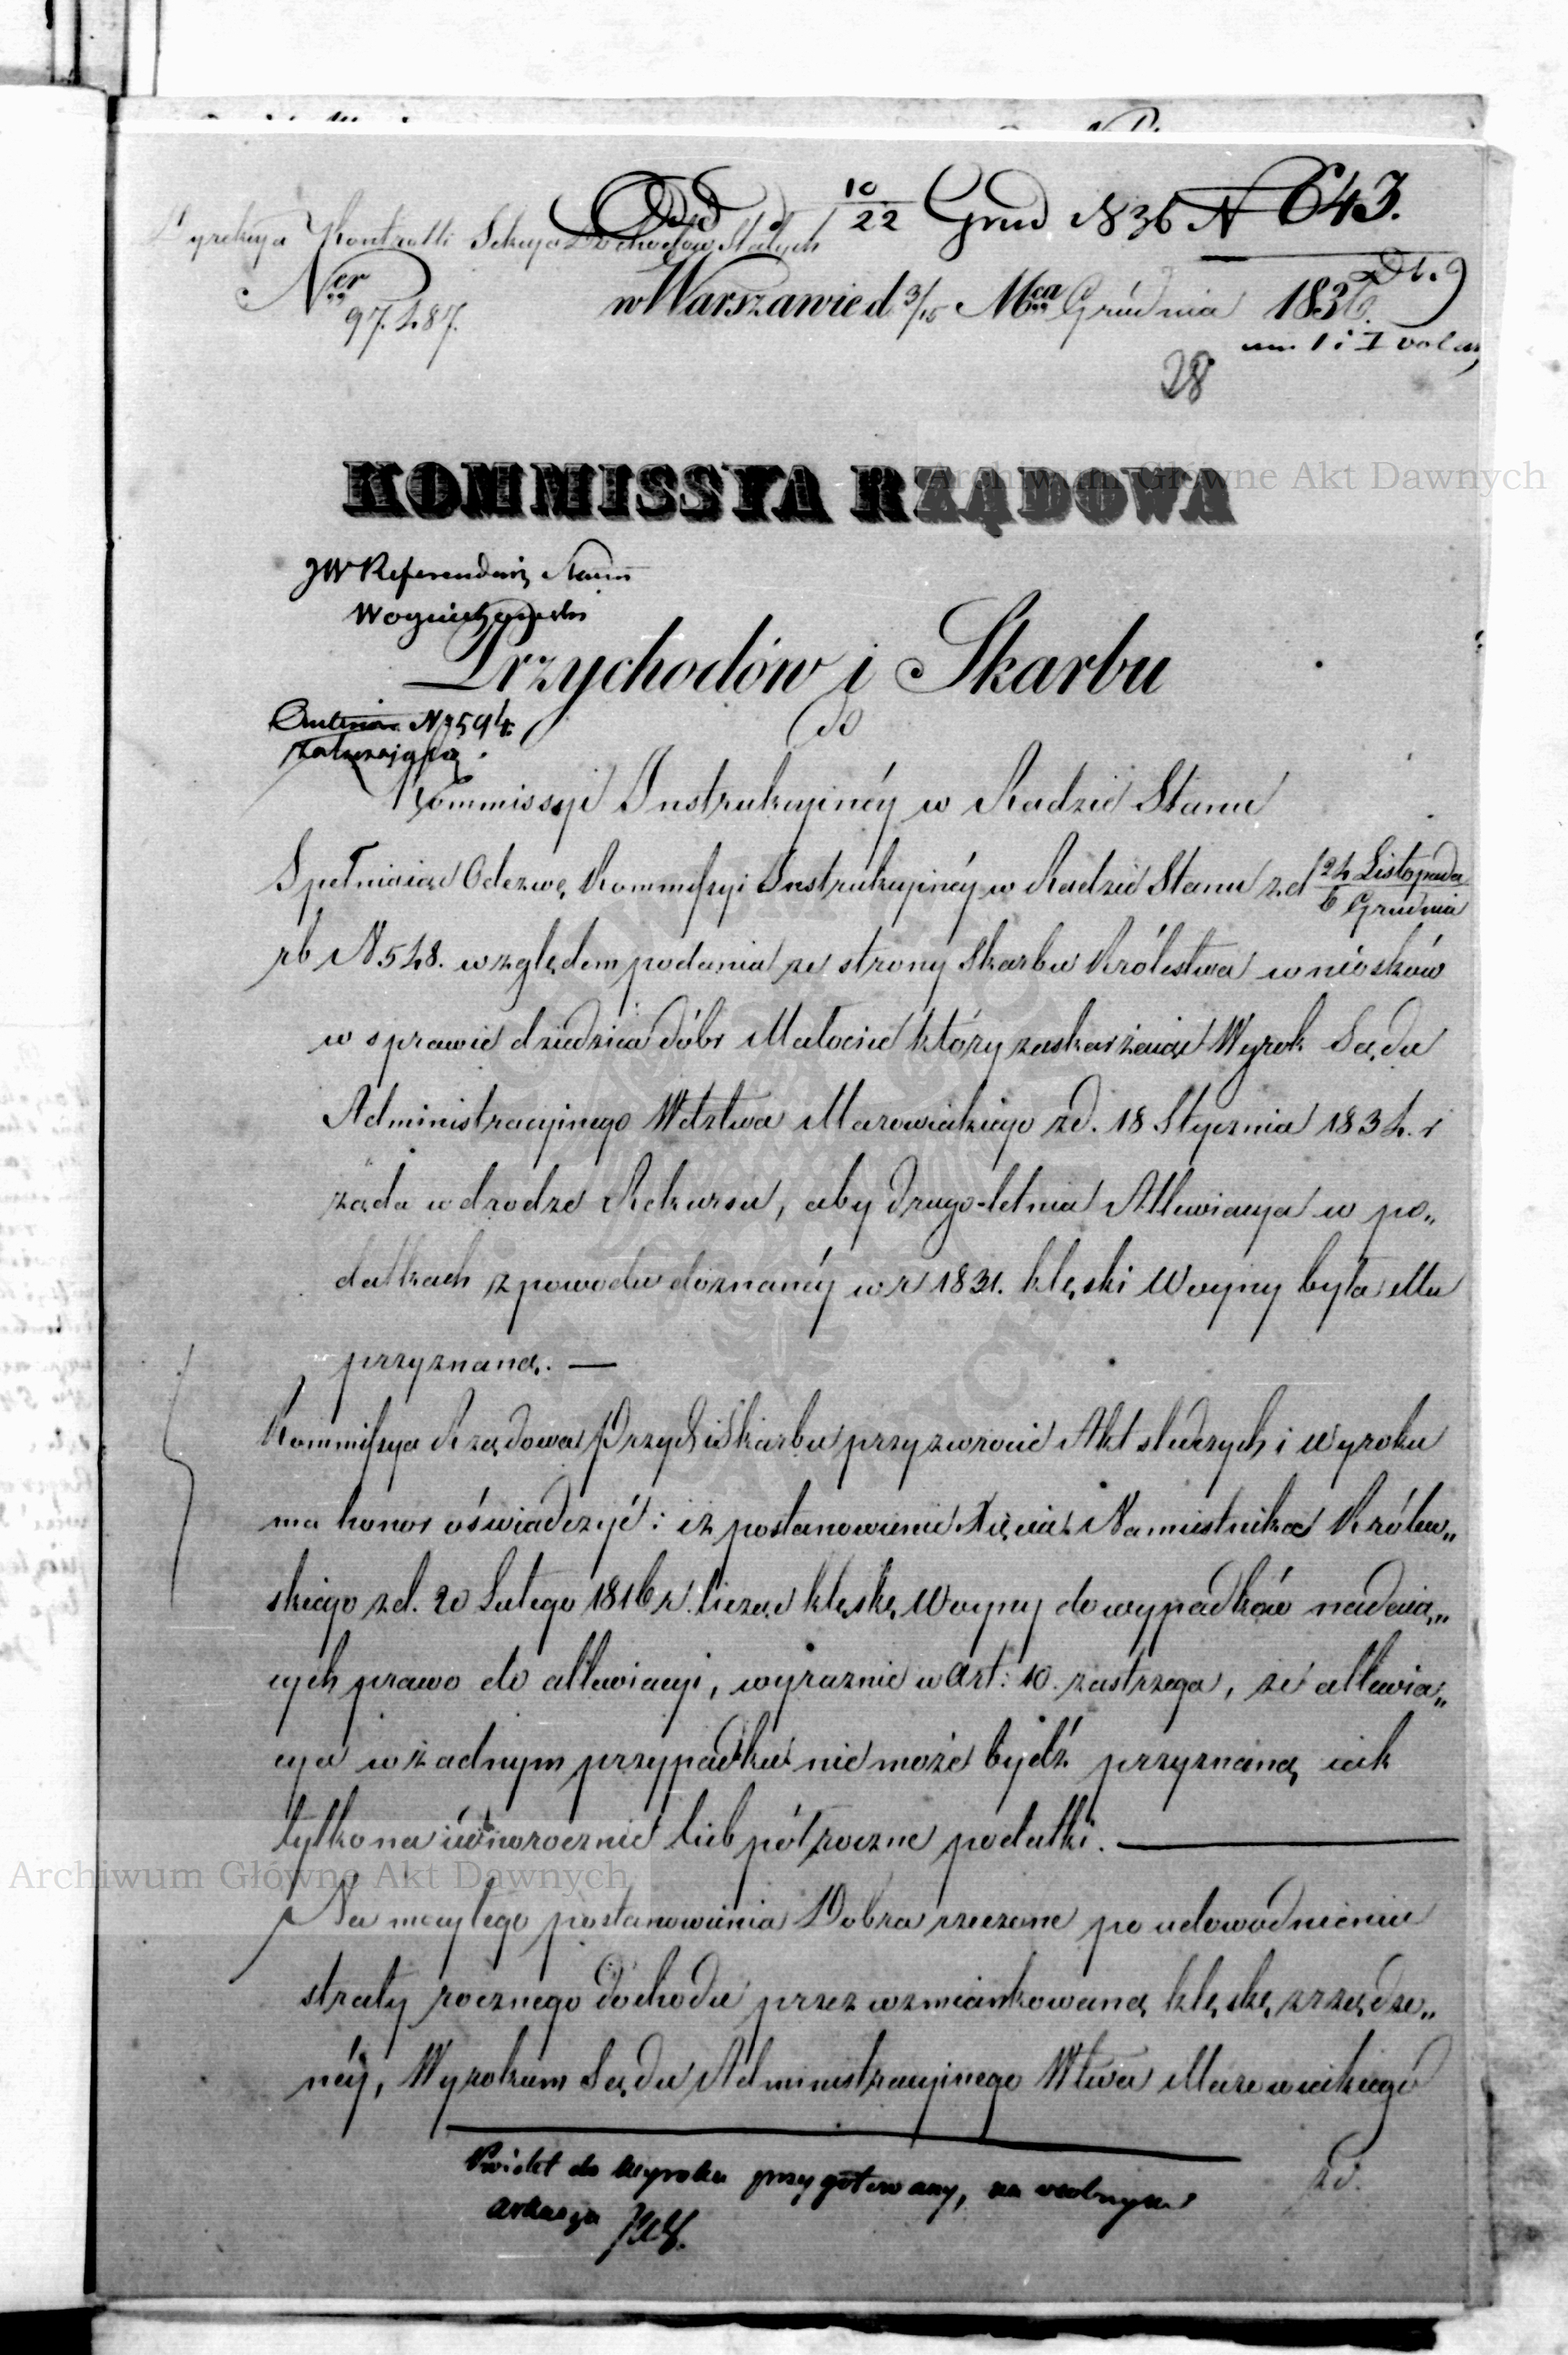 Odd d 10/22 Grud 1836 N 643.
Dyrekcya Kontrolli Sekcya Dochodów Stałych
Ner 97.287.
w Warszawie d 3/15 Mca Grudnia 1836.
28
KOMMISSYA RZĄDOWA
JW Referendarz Stanu
Przychodów i Skarbu
N 594
do
Kommissyi Instrukcyinéy w Radzie Stanu
Spełniaiąc Odezwę Kommissyi Instrukcyinéy w Radzie Stanu z d 24 Listopada / 6 Grudnia
rb N 548. względem podania ze strony Skarbu Królestwa wniosków
w sprawie dziedzica dóbr Małocie który zaskarżaiąc Wyrok Sądu
Administracyinego Wdztwa Mazowieckiego z d. 18 Stycznia 1834. r
żąda w drodze Rekursu, aby drugo-letnia Allewiacya w po„
datkach z powodu doznanéy w r 1831. klęski Woyny była Mu
przyznaną. —
Kommissya Rządowa Przych i Skarbu przy zwrocie Akt służących i wyroku
ma honor oświadczyć: iż postanowienie Xięcia Namiestnika Królew„
skiego z d. 20 Lutego 1816 r. licząc klęskę Woyny do wypadków nadaią„
cych prawo do allewiacyi, wyraznie w Art: 10. zastrzega, że allewia„
cya w żadnym przypadku nie może bydź przyznaną iak
tylko na równoroczne lub półroczne podatki. —
Na mocy tego postanowienia Dobra rzeczone po udowodnieniu
straty rocznego dochodu przez wzmiankowaną klęskę zrządzo„
néy, Wyrokiem Sądu Administracyinego Wtwa Mazowieckiego
zd.
do wyroku przygotowany, na osobnym
arkuszu
Archiwum Główne Akt Dawnych
Archiwum Główne Akt Dawnych